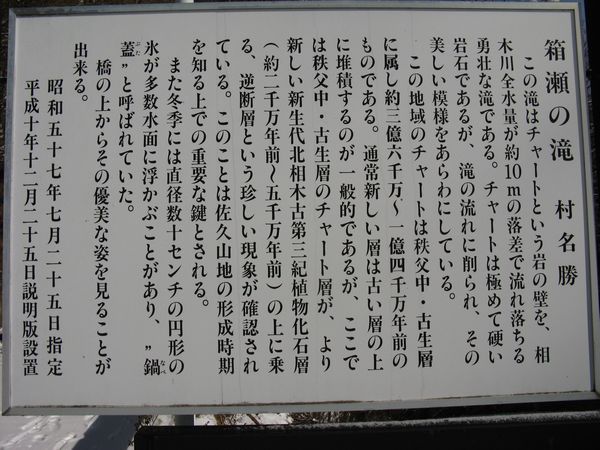 箱瀬の滝　村名勝
この滝はチャートという岩の壁を、相
木川全水量が約10mの落差で流れ落ちる
勇壮な滝である。チャートは極めて硬い
岩石であるが、滝の流れに削られ、その
美しい模様をあらわにしている。
この地域のチャートは秩父中・古生層
に属し約三億六千万～一億四千万年前の
ものである。通常新しい層は古い層の上
に堆積するのが一般的であるが、ここで
は秩父中・古生層のチャート層が、より
新しい新生代北相木古第三紀植物化石層
（約二千万年前～五千万年前）の上に乗
る、逆断層という珍しい現象が確認され
ている。このことは佐久山地の形成時期
を知る上での重要な鍵とされる。
また冬季には直径数十センチの円形の
氷が多数水面に浮かぶことがあり、〝鍋なべ
蓋ぶた〟と呼ばれていた。
橋の上からその優美な姿を見ることが
出来る。
昭和五十七年七月二十五日指定
平成十年十二月二十五日説明版設置